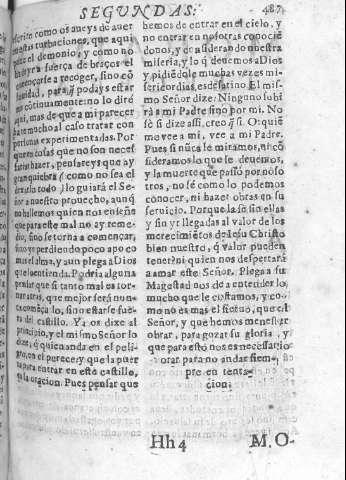 SEGUNDAS. 487
aueys de auer
turbaciones, que aqui
el demonio, y como no
fuerça de braços el
començarse a recoger, sino cõ
para q̃ podays estar
cõtinuamente: no lo diré
aqui, mas de que a mi parecer
mucho al caso tratar con
personas experimentadas. Por
cosas que no son neces
hazer, pensareys que ay
gran quiebra (como no sea el
dexarlo todo) lo guiará el Se-
ñor a nuestro prouecho, aunq̃
no hallemos quien nos enseñe
que para este mal no ay reme-
dio, sino se torna a començar,
sino yr perdiendo poco a poco
mas el alma, y aun plega a Dios
que lo entienda. Podria alguna
pensar que si tanto mal es tor-
nar atras, que mejor será nun-
ca começalo, sino estarse fue-
ra del castillo. Ya os dixe al
principio, y el mismo Señor lo
dize, q̃ quien anda en el peli-
gro, en el perece: y que la puer
ta para entrar en este castillo,
es la oracion. Pues pensar que
hemos de entrar en el cielo, y
no entrar en nosotras conociẽ
donos, y considerando nuestra
miseria, y lo q̃ deuemos a Dios
y pidiẽdole muchas vezes mi-
sericordia, es desatino. El mis-
mo Señor dize: Ninguno subi
rá a mi Padre sino por mi. No
sé si dize assi, creo q̃ si. O: quiẽ
me vee a mi, vee a mi Padre.
Pues si nũca le miramos, ni cõ
sideramos lo que le deuemos,
y la muerte que passó por noso
tros, no sé como lo podemos
conocer, ni hazer obras en su
seruicio. Porque la fè sin ellas
y sin yr llegadas al valor de los
merecimiẽtos de Iesu Christo
bien nuestro, q̃ valor pueden
tener? ni quien nos despertará
a amar este Señor. Plega a su
Magestad nos dè a entender lo
mucho que le costamos, y co-
mo no es mas el sieruo, que el
Señor, y que hemos menester
obrar, para gozar su gloria, y
que para esto nos es necessario
orar para no andar siem-
pre en tenta-
cion.
Hh 4 M.O-